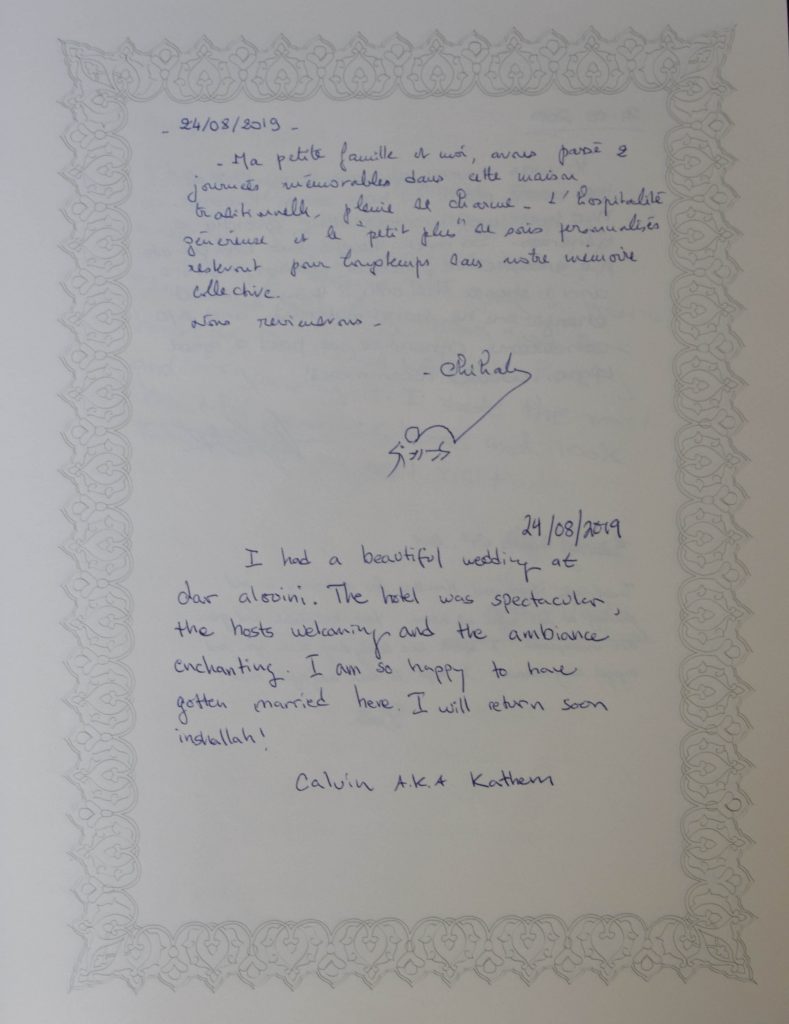 - 24/08/2019 -
- Ma petite famille et moi, avons passé 2
journées mémorables dans cette maison
traditionnelle, pleine de charme - L'hospitalité
généreuse et le "petit plus" de soins personnalisés
resteront pour longtemps dans notre mémoire
collective.
Nous reviendrons -
24/08/2019
I had a beautiful wedding at
dar alouini. The hotel was spectacular,
the hosts welcoming and the ambiance
enchanting. I am so happy to have
gotten married here. I will return soon
inshallah!
Calvin A.K.A Kathem